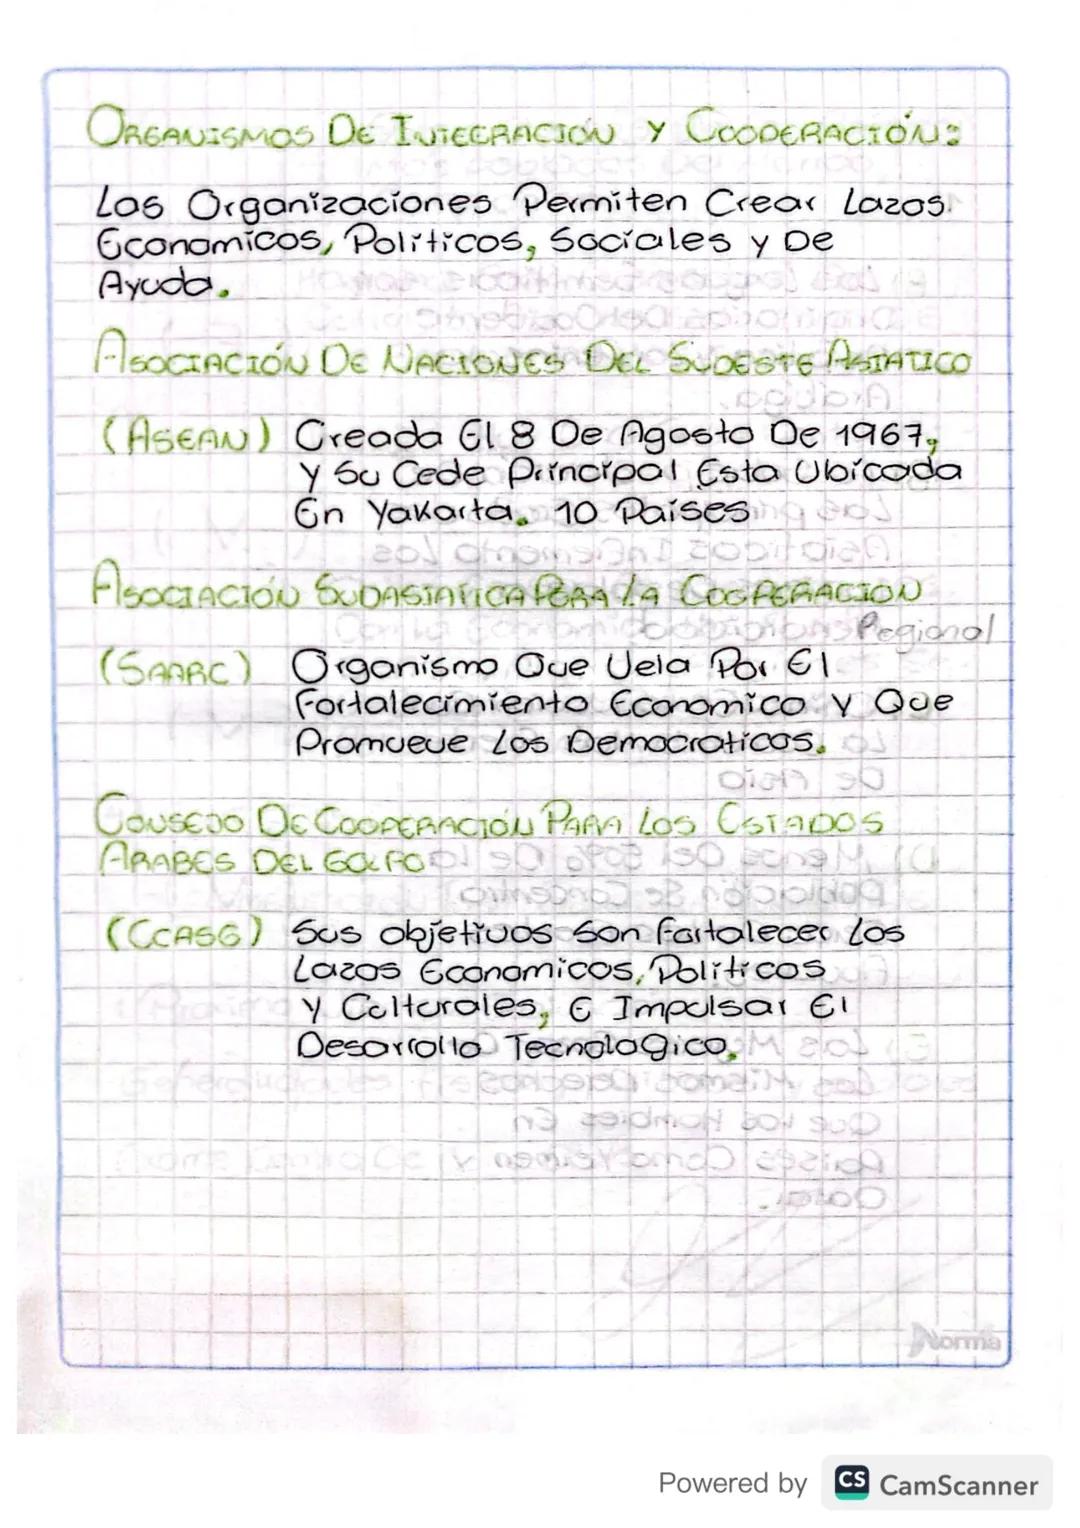 ORGANISMOS DE INTEGRACION Y COOPERACIÓN:
Las Organizaciones Permiten Crear Lazos
Economicos, Políticos, Sociales y De
Ayuda.
ASOCIACIÓN DE NACIONES DEL SUDESTE ASIATICO
(ASEAN) Creada El 8 De Agosto De 1967,
y Su Cede Principal Esta Ubicada
En Yakarta. 10 Paises
ASOCIACIÓN SUDASIATICA PARA LA COOPERACION
Regional
(SAARC) Organismo Que Vela Por El
Fortalecimiento Economico y Que
Promueve Los Democraticos.
CONSEJO DE COOPERACIÓN PARA LOS ESTADOS
ARABES DEL GOLFO
(CCASG) Sus objetivos Son Fortalecer Los
Lazos Economicos, Políticos
y Culturales, E Impulsar El
Desarrollo Tecnologico.
Norma
Powered by CS CamScanner